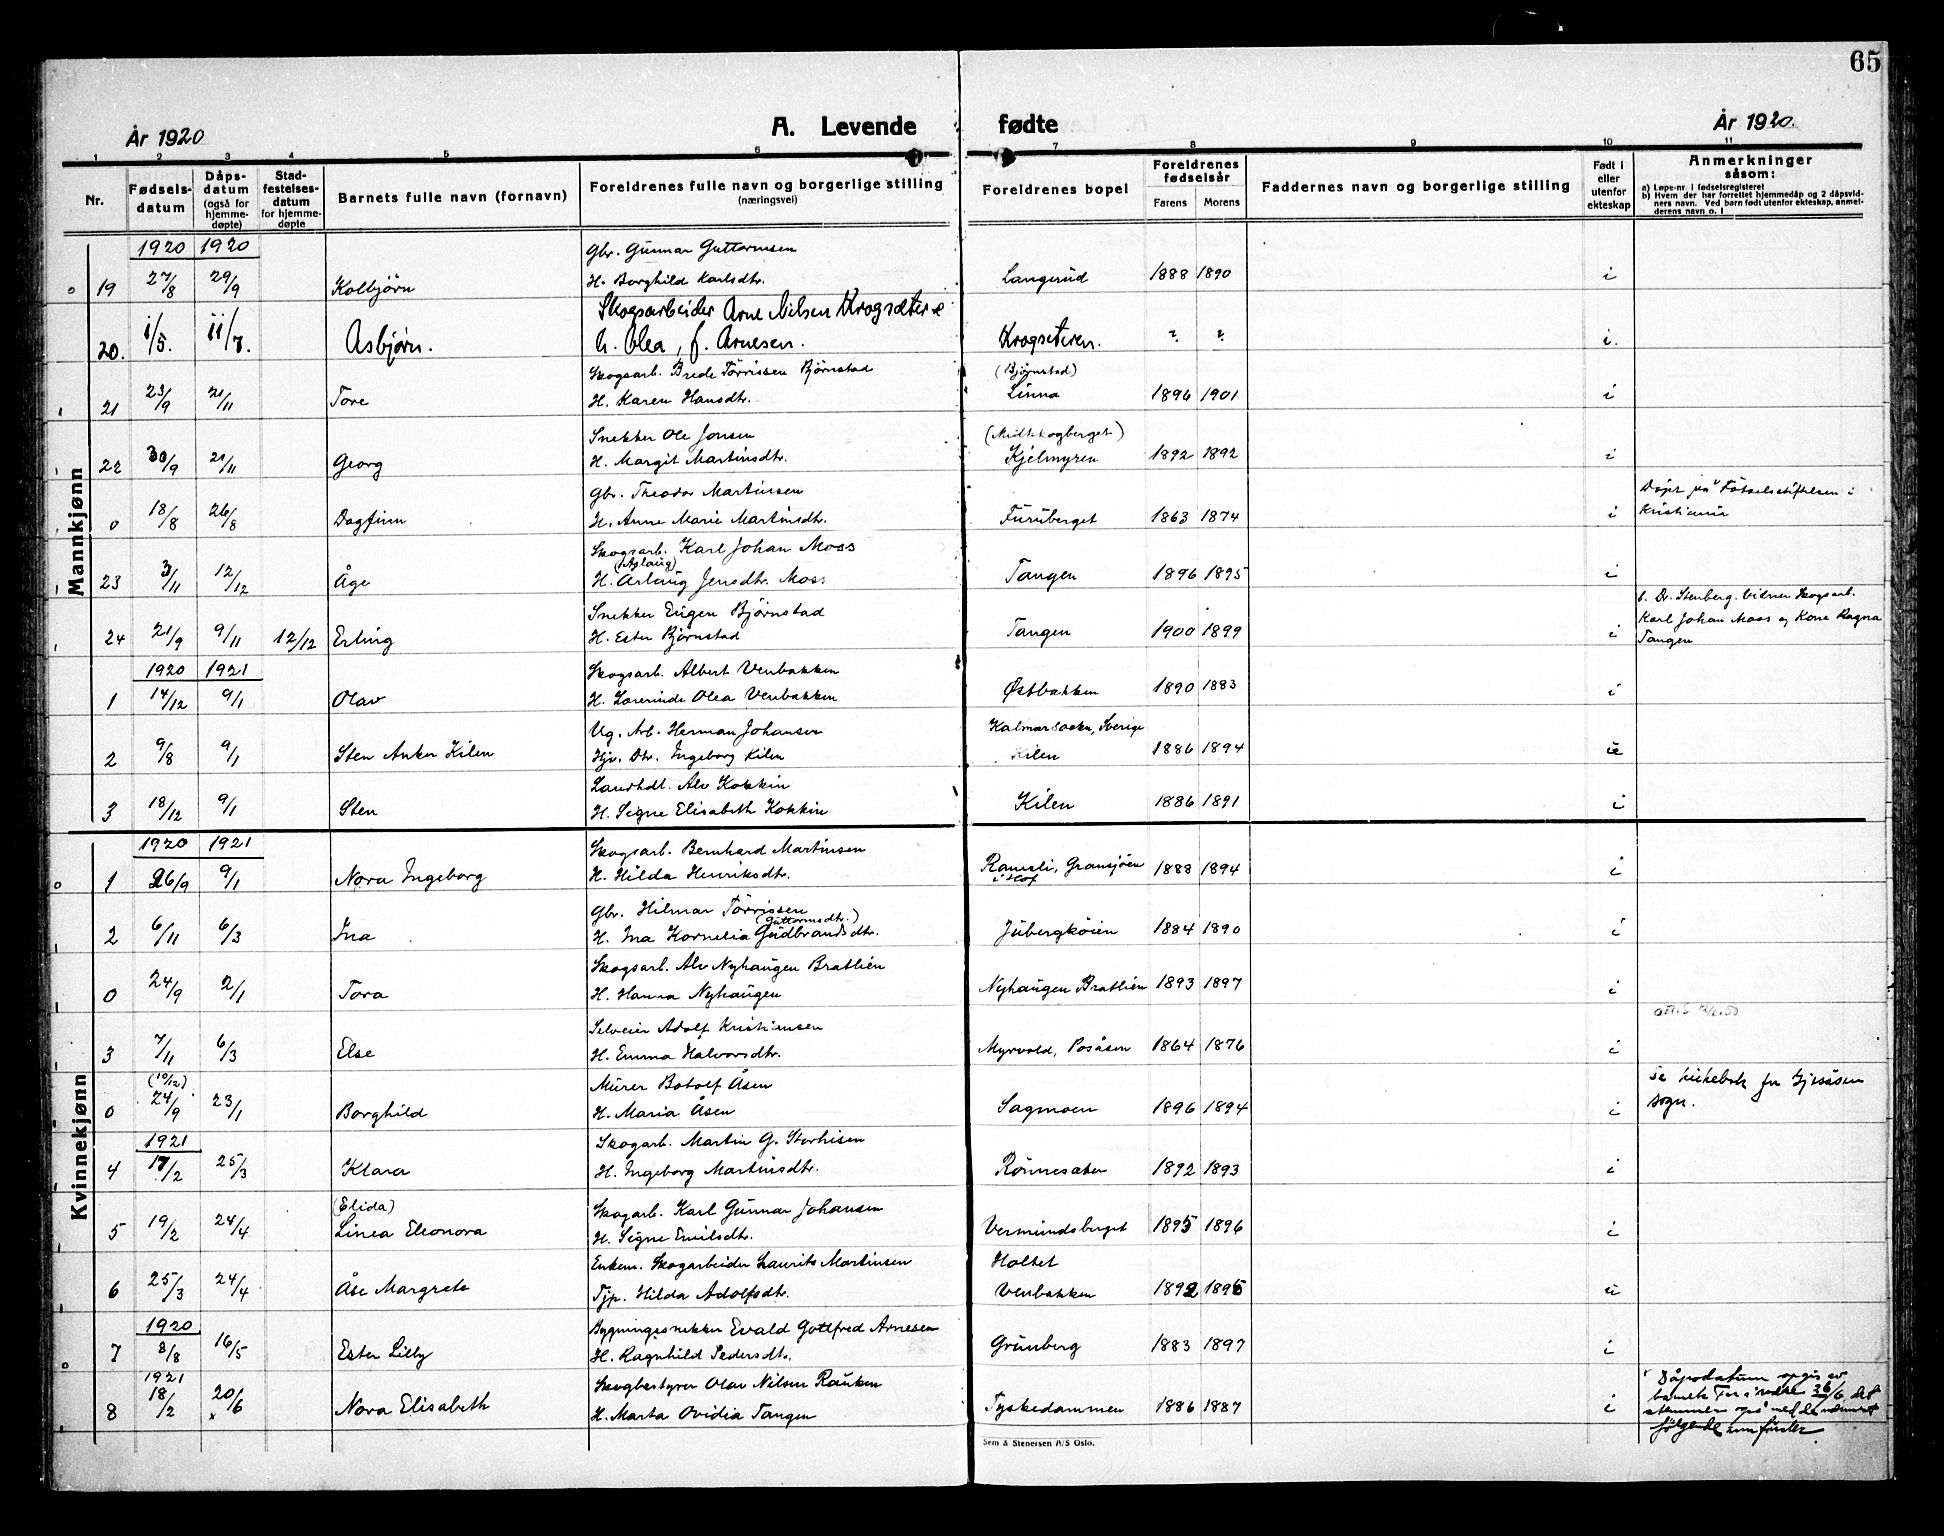 65
År 1920
A. Levende fødte
År 1920.
1 2 3 4 5 6 7 8 9 10 11
Nr. Fødsels-datum Dåps-datum (også for hjemme-døpte) Stad-festelses-datum for hjemme-døpte Barnets fulle navn (fornavn) Foreldrenes fulle navn og borgerlige stilling (næringsvei) Foreldrenes bopel Foreldrenes fødselsår Farens Morens Faddernes navn og borgerlige stilling Født i eller utenfor ekteskap Anmerkninger såsom:
a) Løpe-nr. i fødselsregisteret
b) Hvem der har forrettet hjemmedåp og 2 dåpsvid-
ners navn. Ved barn født utenfor ekteskap, anmel-
derens navn o. l
Mannkjønn
1920 1920
Gbr. Gunnar Guttormsen
19 27/8 29/9 Kolbjørn H. Borghild Karlsdtr. Langrud 1888 1890 i
Skogsarbeider Arne Nilsen Krogsæter e
20. 1/5. 11/7. Asbjørn. h. Olea, f. Arnesen. Krogseteren. ? ? i.
Skogsarb. Brede Tørrissen Bjørnstad (Bjørnstad)
21 23/9 21/11 Tore H. Karen Hansdtr. Linna 1896 1901 i
Snekker Ole Jonsen (Midtskogberget)
22 30/9 21/11 Georg H. Margit Martinsdtr. Kjelmyren 1892 1892 i
Gbr. Theodor Martinsen Døpt på Fødselsstiftelsen i
0 18/8 26/8 Dagfinn H. Anne Marie Martinsdtr. Furuberget 1863 1874 i Kristiania
Skogsarb. Karl Johan Moss
(Aslaug)
23 3/11 12/12 Åge H. Aslaug Jensdtr. Moss Tangen 1896 1895 i
Snekker Eugen Bjørnstad b. Dr. Stenberg. Vidner Skogsarb.
24 21/9 9/11 12/12 Erling H. Ester Bjørnstad Tangen 1900 1899 i Karl Johan Moss og Kone Ragna
Tangen
1920 1921
Skogsarb. Albert Venbakken
1 14/12 9/1 Olav H. Lorerinde Olea Venbakken Østbakken 1890 1883 i
Ug. Arb. Herman Johansen Kalmar Socken, Sverige
2 9/8 9/1 Sten Anker Kilen Hjv. Dtr. Ingeborg Kilen Kilen 1886 1894 u
Landhdl. Alv Kokkin
3 18/12 9/1 Sten H. Signe Elisabeth Kokkin Kilen 1886 1891 i
Kvinnekjønn
1920 1921
Skogsarb. Bernhard Martinsen
1 26/9 9/1 Nora Ingeborg H. Hilda Henriksdtr. Rameli, Gransjøen i Hof 1888 1894 i
Gbr. Hilmar Tørrissen
(Guttormsdtr.)
2 6/11 6/3 Ina H. Ina Kornelia Gudbrandsdtr. Jubergkøien 1884 1890 i
Skogsarb. Alv Nyhaugen Bratlien
0 24/9 2/1 Tora H. Hanna Nyhaugen Nyhaugen Bratlien 1893 1897 i
Selveier Adolf Kristiansen
3 7/11 6/3 Else H. Emma Halvorsdtr. Myrvold, Posåsen 1864 1876 i
(10/12) Murer Botolf Åsen Se kirkebok for Gjesåsen
0 24/9 23/1 Borghild H. Maria Åsen Sagmoen 1896 1894 i sogn.
1921 Skogarb. Martin G. Storhisen
4 17/2 25/3 Klara H. Ingeborg Martinsdtr. Rønnesæter 1892 1893 i
(Elida) Skogarb. Karl Gunnar Johansen
5 19/2 24/4 Linea Eleonora H. Signe Emilsdtr. Vermundsberget 1895 1896 i
Enkem. Skogarbeider Laurits Martinsen Holtet
6 25/3 24/4 Åse Margrete Tjp. Hilda Adolfsdtr. Venbakken 1892 1895 u
1920 Bygningssnekker Evald Gottfred Arnesen
7 8/8 16/5 Ester Lilly H. Ragnhild Pedersdtr. Grünberg 1883 1897 i
1921 Skogbestyrer Olav Nilsen Rauken Dåpsdatum opgis av
8 18/2 20/6 Nora Elisabeth H. Marta Ovidia Tangen Tyskedammen 1886 1887 i 26/6 det
stemmer også med de nærmest
følgende
Sem & Stenersen A/S Oslo.